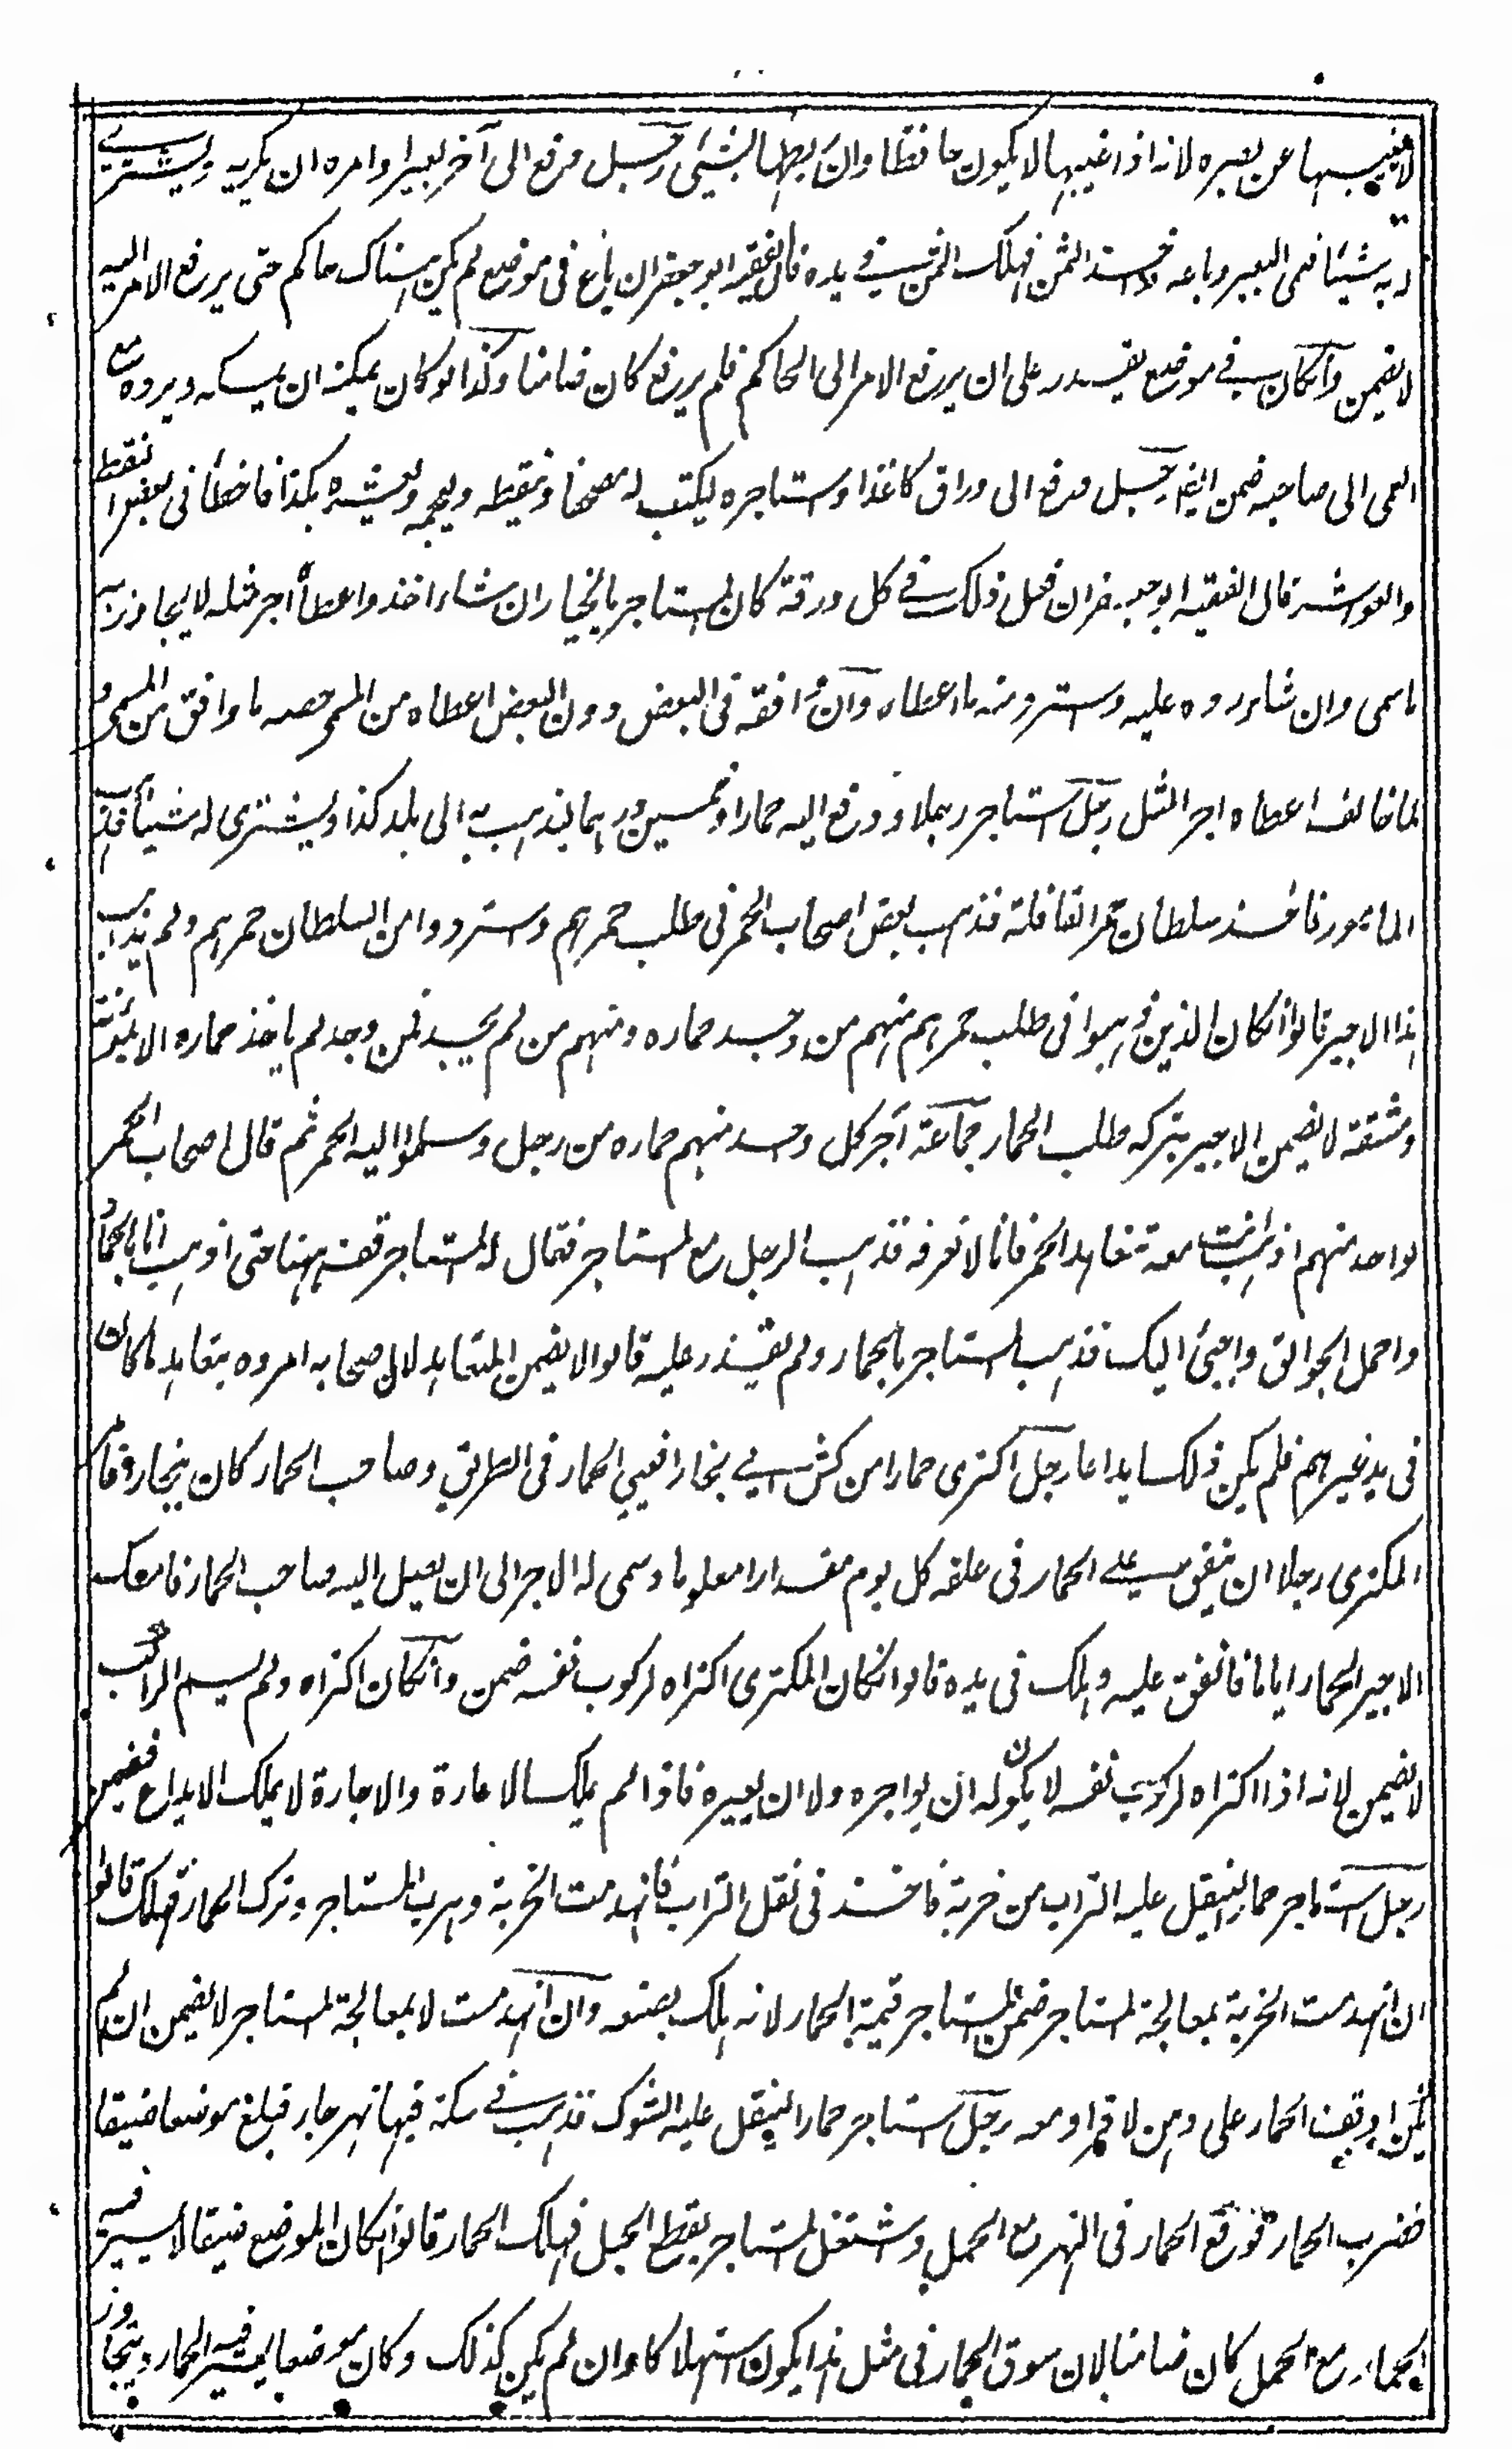 لا يغيبها عن بصره لانه اذا غيبها لا يكون حافظا وان ربطها بشيئ رجل دفع الى آخر بعيرا وامره ان يكريه ويشترى
له شيئا فعمى البعير وباعه واخذ الثمن فهلك الثمن في يده قال الفقيه ابو جعفر ان باع فى موضع لم يكن هناك حاكم حتى يرفع الامر اليه
لا يضمن وان كان في موضع يقدر على ان يرفع الامر الى الحاكم فلم يرفع كان ضامنا وكذا لو كان يمكنه ان يمسكه ويرده مع
العمى الى صاحبه ضمن ايضا رجل دفع الى وراق كاغذا واستاجره ليكتب له مصحفا وينقطه ويعجمه ويعشره بكذا فاخطأ فى بعض النقط
والعواشر قال الفقيه ابو جعفر ان فعل ذلك في كل ورقة كان المستاجر بالخيار ان شاء اخذ واعطاه اجر مثله لا يجاوز به
ما سمى وان شاء رده عليه واسترد منه ما اعطاه وان وافقه فى البعض دون البعض اعطاه من المسمى حصه ما وافق من المسمى و
لما خالف اعطاه اجر المثل رجل استاجر رجلا ودفع اليه حمارا وخمسين درهما ليذهب به الى بلد كذا ويشترى له شيئا فذهب
المامور فاخذ سلطان حمر القافلة فذهب بعض اصحاب الحمر فى طلب حمرهم واستردوا من السلطان حمرهم ولم يذهب
هذا الاجير قالوا ان كان الذين ذهبوا فى طلب حمرهم منهم من وجد حماره ومنهم من لم يجد فمن وجد لم ياخذ حماره الا بمؤنة
ومشقة لا يضمن الاجير بتركه طلب الحمار جماعة آجر كل واحد منهم حماره من رجل وسلموا اليه الحمر ثم قال اصحاب الحمر
لواحد منهم اذهب انت معه تتعاهد الحمر فانا لا نعرفه فذهب الرجل مع المستاجر فقال له المستاجر قف ههنا حتى اذهب انا بالحمار
واحمل الجوالق واجئ اليك فذهب المستاجر بالحمار ولم يقدر عليه قالوا لا يضمن المتعاهد لان اصحابه امروه بتعاهد ما كان
فى يد غيرهم فلم يكن ذلك ايداعا رجل اكترى حمارا من كش الى بخارا فعيي الحمار فى الطريق وصاحب الحمار كان ببخارا فامر
المكترى رجلا ان ينفق على الحمار فى علفه كل يوم مقدارا معلوما وسمى له الاجر الى ان يصل اليه صاحب الحمار فامسك
الاجير الحمار اياما فانفق عليه وهلك فى يده قالوا ان كان المكترى اكتراه لركوب نفسه ضمن وان كان اكتراه ولم يسم الراكب
لا يضمن لانه اذا اكتراه لركوب نفسه لا يكون له ان يواجره ولا ان يعيره فاذا لم يملك الاعارة والاجارة لا يملك الايداع فيضمن
رجل استاجر حمارا لينقل عليه التراب من خربة فاخذ فى نقل التراب فانهدمت الخربة وهرب المستاجر وترك الحمار فهلك قالوا
ان انهدمت الخربة بمعالجة المستاجر ضمن المستاجر قيمة الحمار لانه هلك بصنعه وان انهدمت لا بمعالجة المستاجر لا يضمن ان لم
يكن اوقف الحمار على وهن لا قراره معه رجل استاجر حمارا لينقل عليه الشوك فذهب في سكة فيها نهر جار فبلغ موضعا ضيقا
فضرب الحمار فوقع الحمار فى النهر مع الحمل واشتغل المستاجر بقطع الحبل فهلك الحمار قالوا ان كان الموضع ضيقا لا يسير فيه
الحمار مع الحمل كان ضامنا لان سوق الحمار فى مثل هذا يكون استهلاكا وان لم يكن كذلك وكان موضعا يسير فيه الحمار ويتجاوز